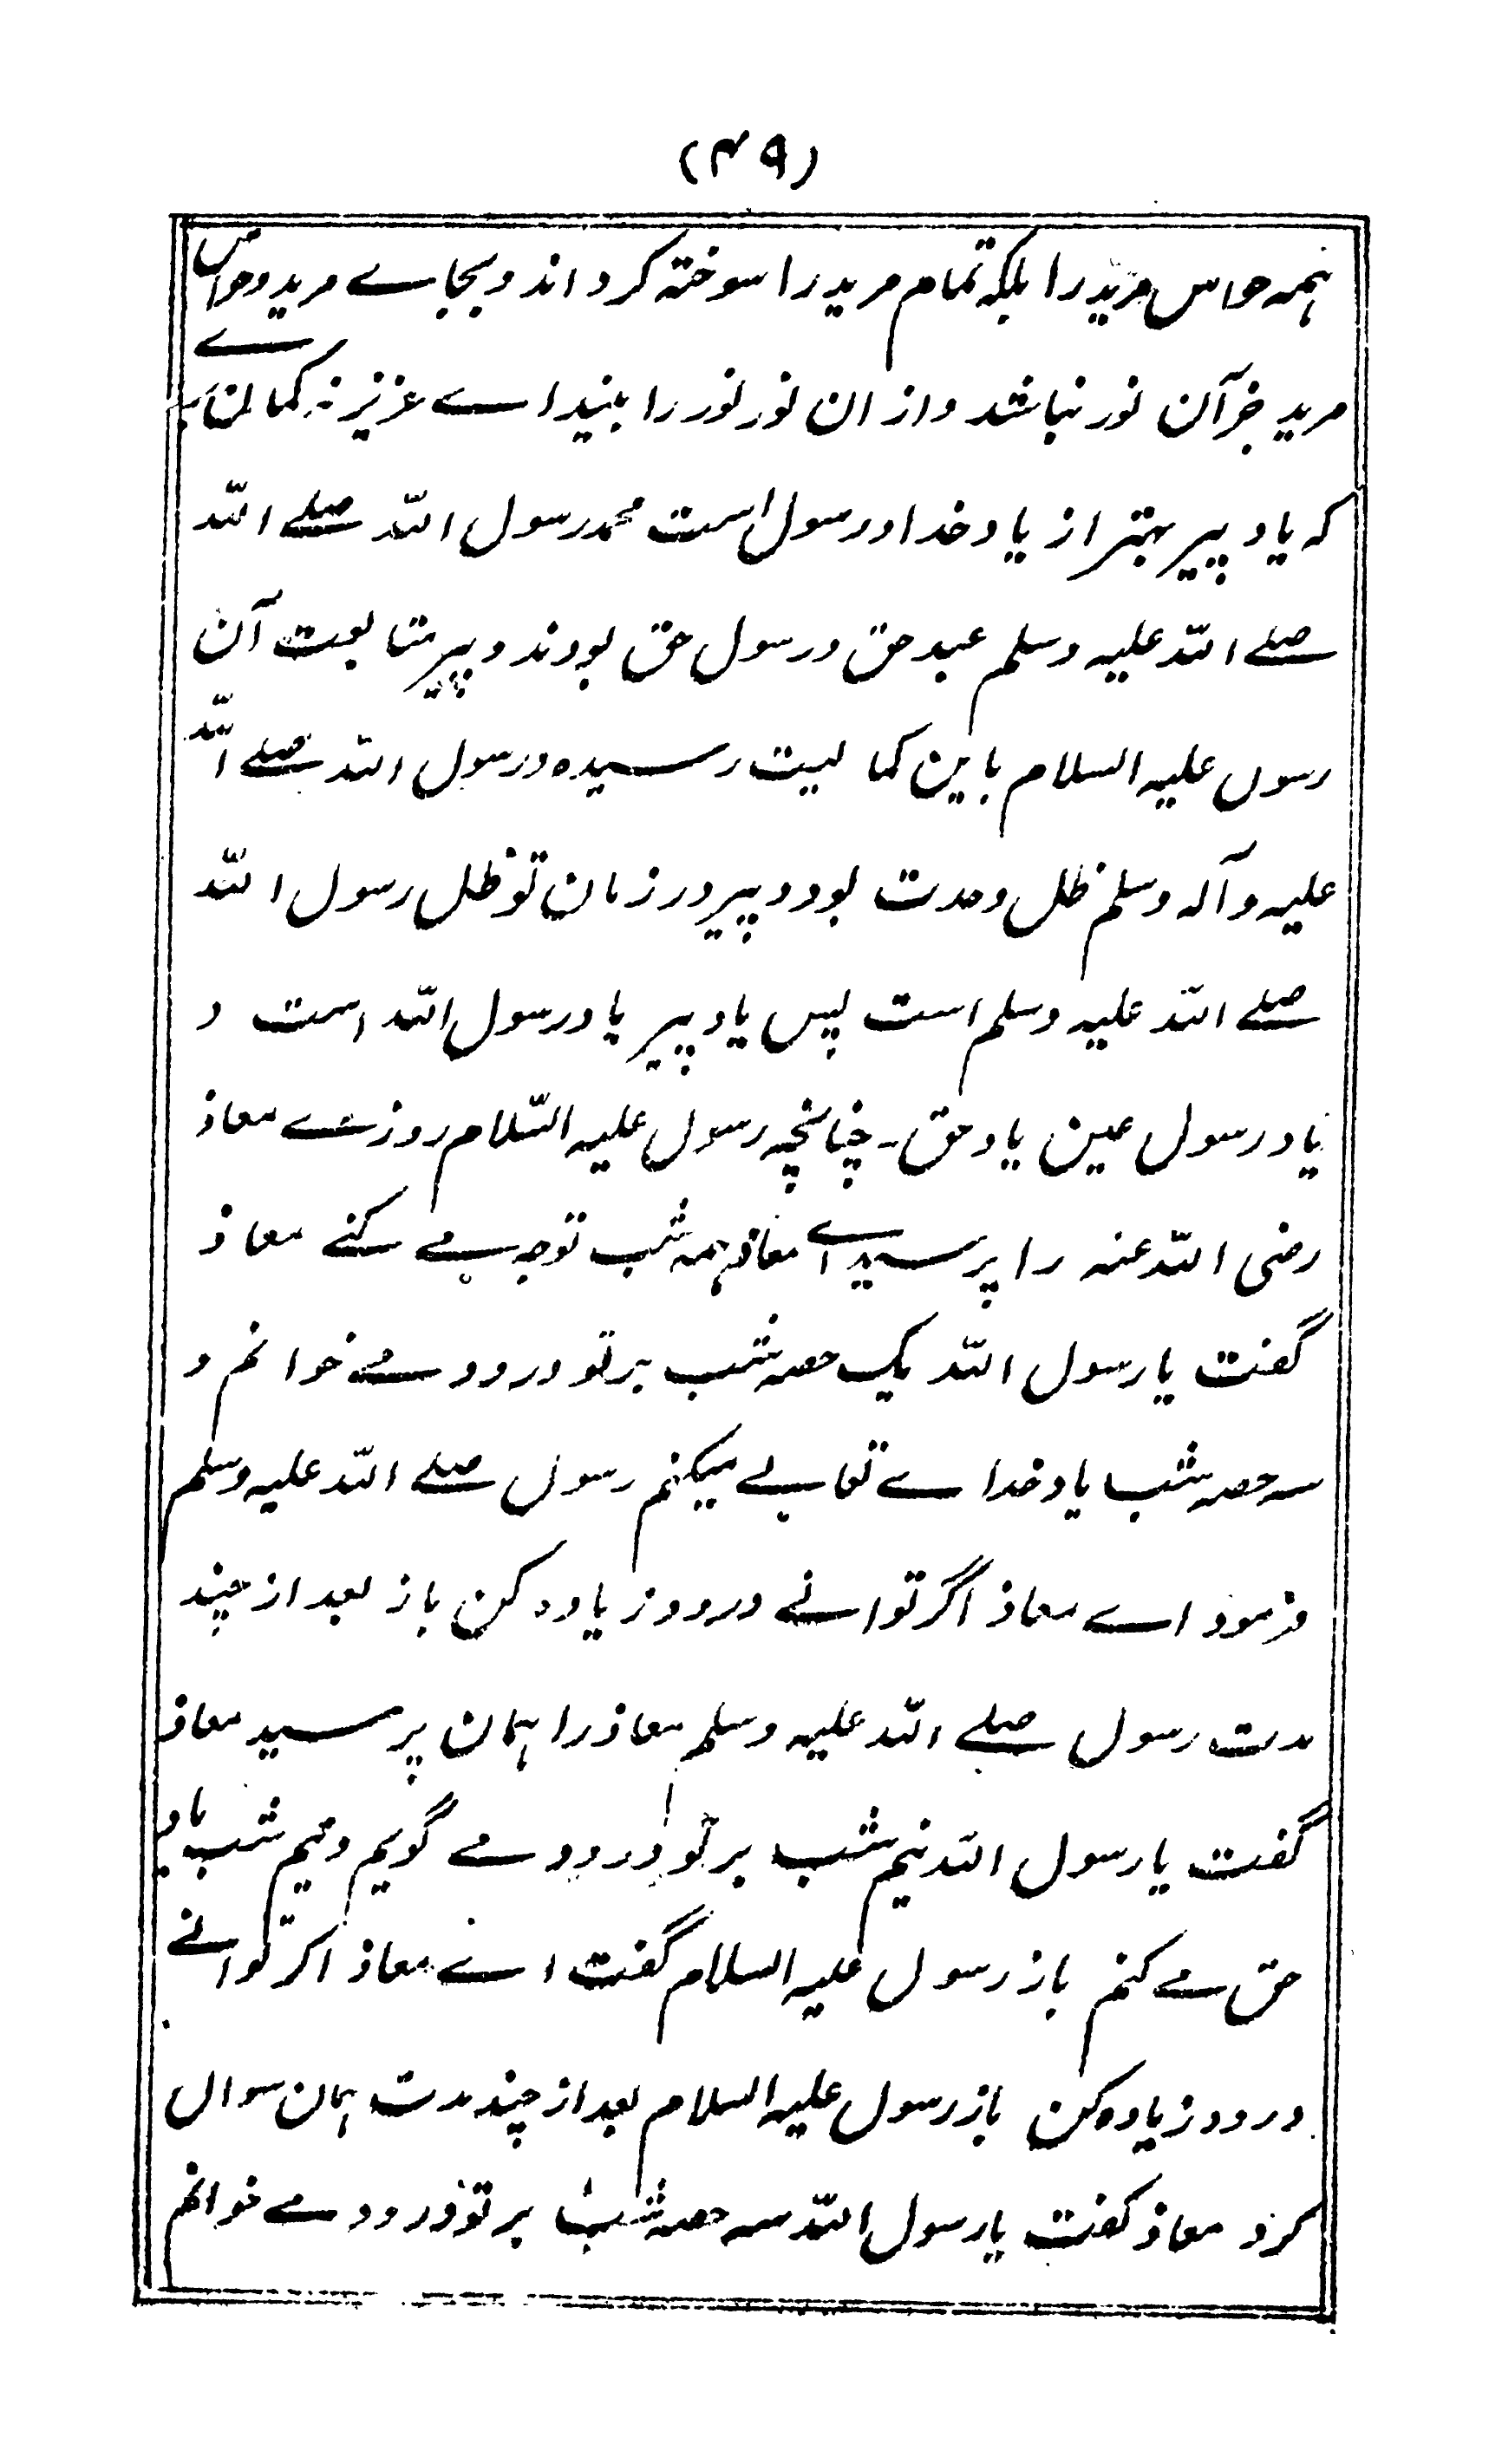 (۴۹)
ہمہ حواس مرید را بلکہ تمام مرید را سوختہ گرداند و بجاے مرید و حواس
مرید جز آن نور نباشد و از ان نور نور را بیند اے عزیز نہ گمان برے
کہ یاد پیر بہتر از یاد خدا و رسول است محمد رسول اللّٰہ صلے اللّٰہ
صلے اللّٰہ علیہ وسلم عبد حق و رسول حق بودند و پیر متابعت آن
رسول علیہ السلام باین کمالیت رسیدہ و رسول اللّٰہ صلے اللّٰہ
علیہ و آلہ وسلم ظل وحدت بود و پیر در زمان تو ظل رسول اللّٰہ
صلے اللّٰہ علیہ وسلم است پس یاد پیر یاد رسول اللّٰہ است و
یاد رسول عین یاد حق ـ چنانچہ رسول علیہ السّلام روزے معاذ
رضی اللّٰہ عنہ را پرسید اے معاذ ہمہ شب توجہ مے کنے معاذ
گفت یا رسول اللّٰہ یک حصہ شب بر تو درود مے خوانم و
سہ حصہ شب یاد خداے تعالےٰ میکنم رسول صلے اللّٰہ علیہ وسلم
فرمود اے معاذ اگر توانے درود زیادہ کن باز بعد از چند
مدت رسول صلے اللّٰہ علیہ وسلم معاذ را ہمان پرسید معاذ
گفت یا رسول اللّٰہ نیم شب بر تو درود مے گویم و نیم شب یاد
حق مے کنم باز رسول علیہ السلام گفت اے معاذ اگر توانے
درود زیادہ کن باز رسول علیہ السلام بعد از چند مدت ہمان سوال
کرد معاذ گفت یا رسول اللّٰہ سہ حصہ شب بر تو درود مے خوانم